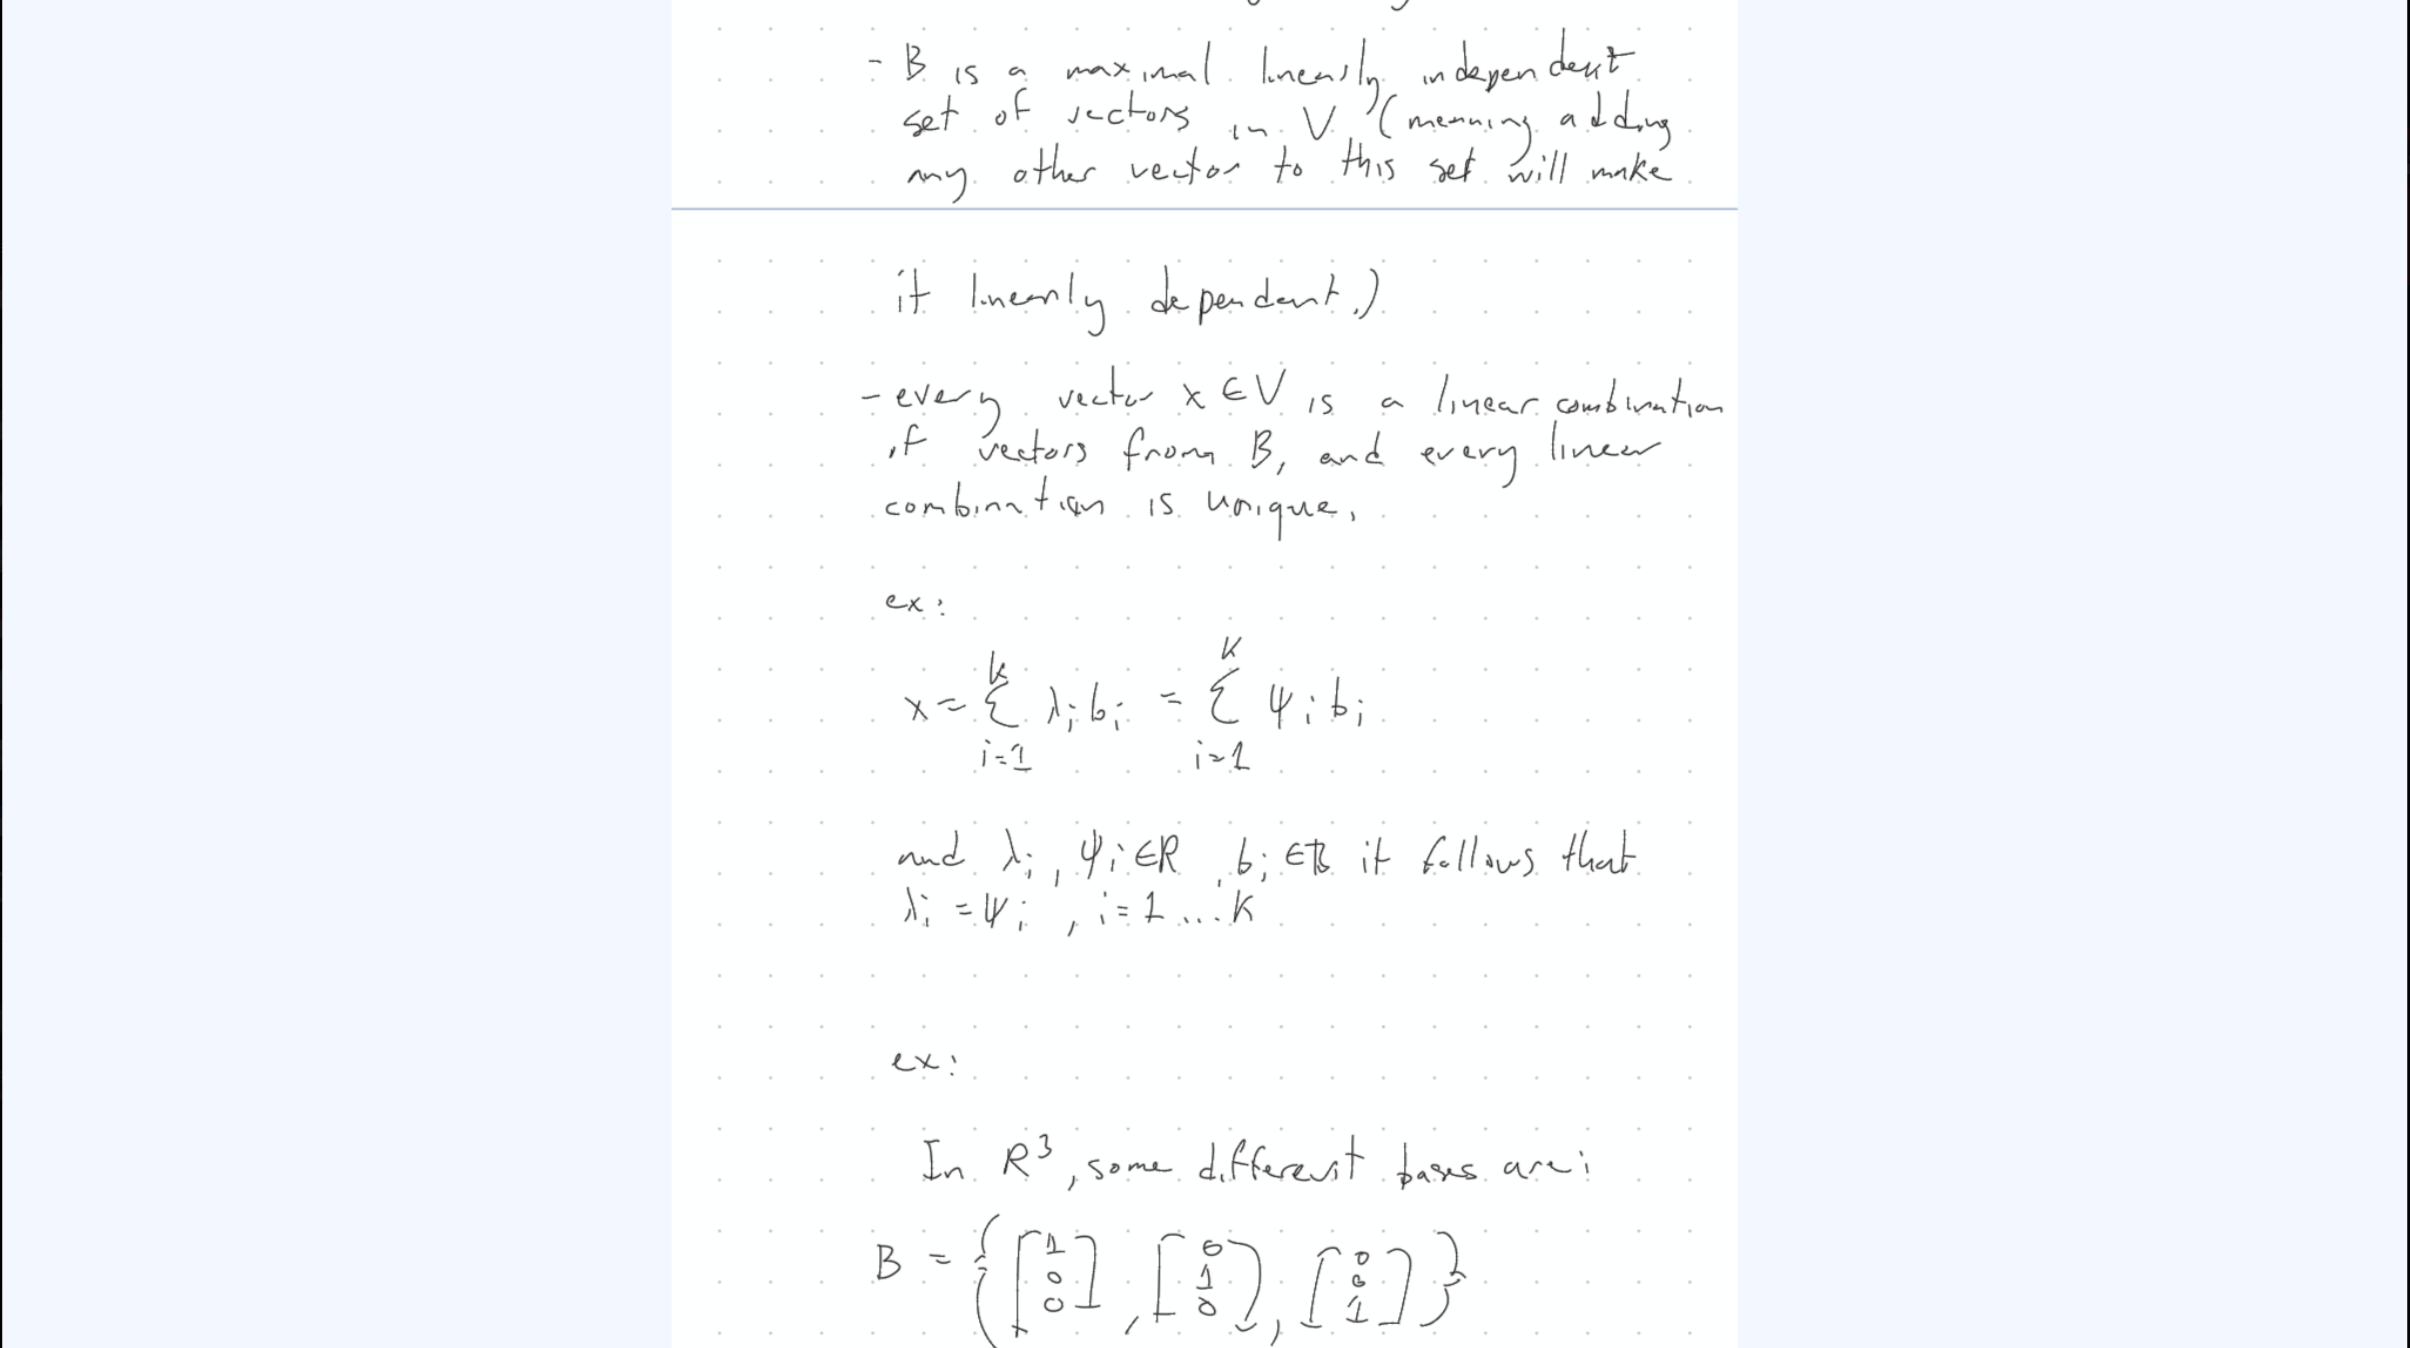 - B is a maximal linearly independent
set of vectors in V (meaning adding
any other vector to this set will make
it linearly dependent.)
- every vector x ∈ V is a linear combination
of vectors from B, and every linear
combination is unique.
ex:
x = k∑i=1 λibi = K∑i=1 ψibi
and λi, ψi ∈ R, bi ∈ B it follows that
λi = ψi, i = 1 ... K
ex:
In R³, some different bases are:
B = {[1 0 0], [0 1 0], [0 0 1]}